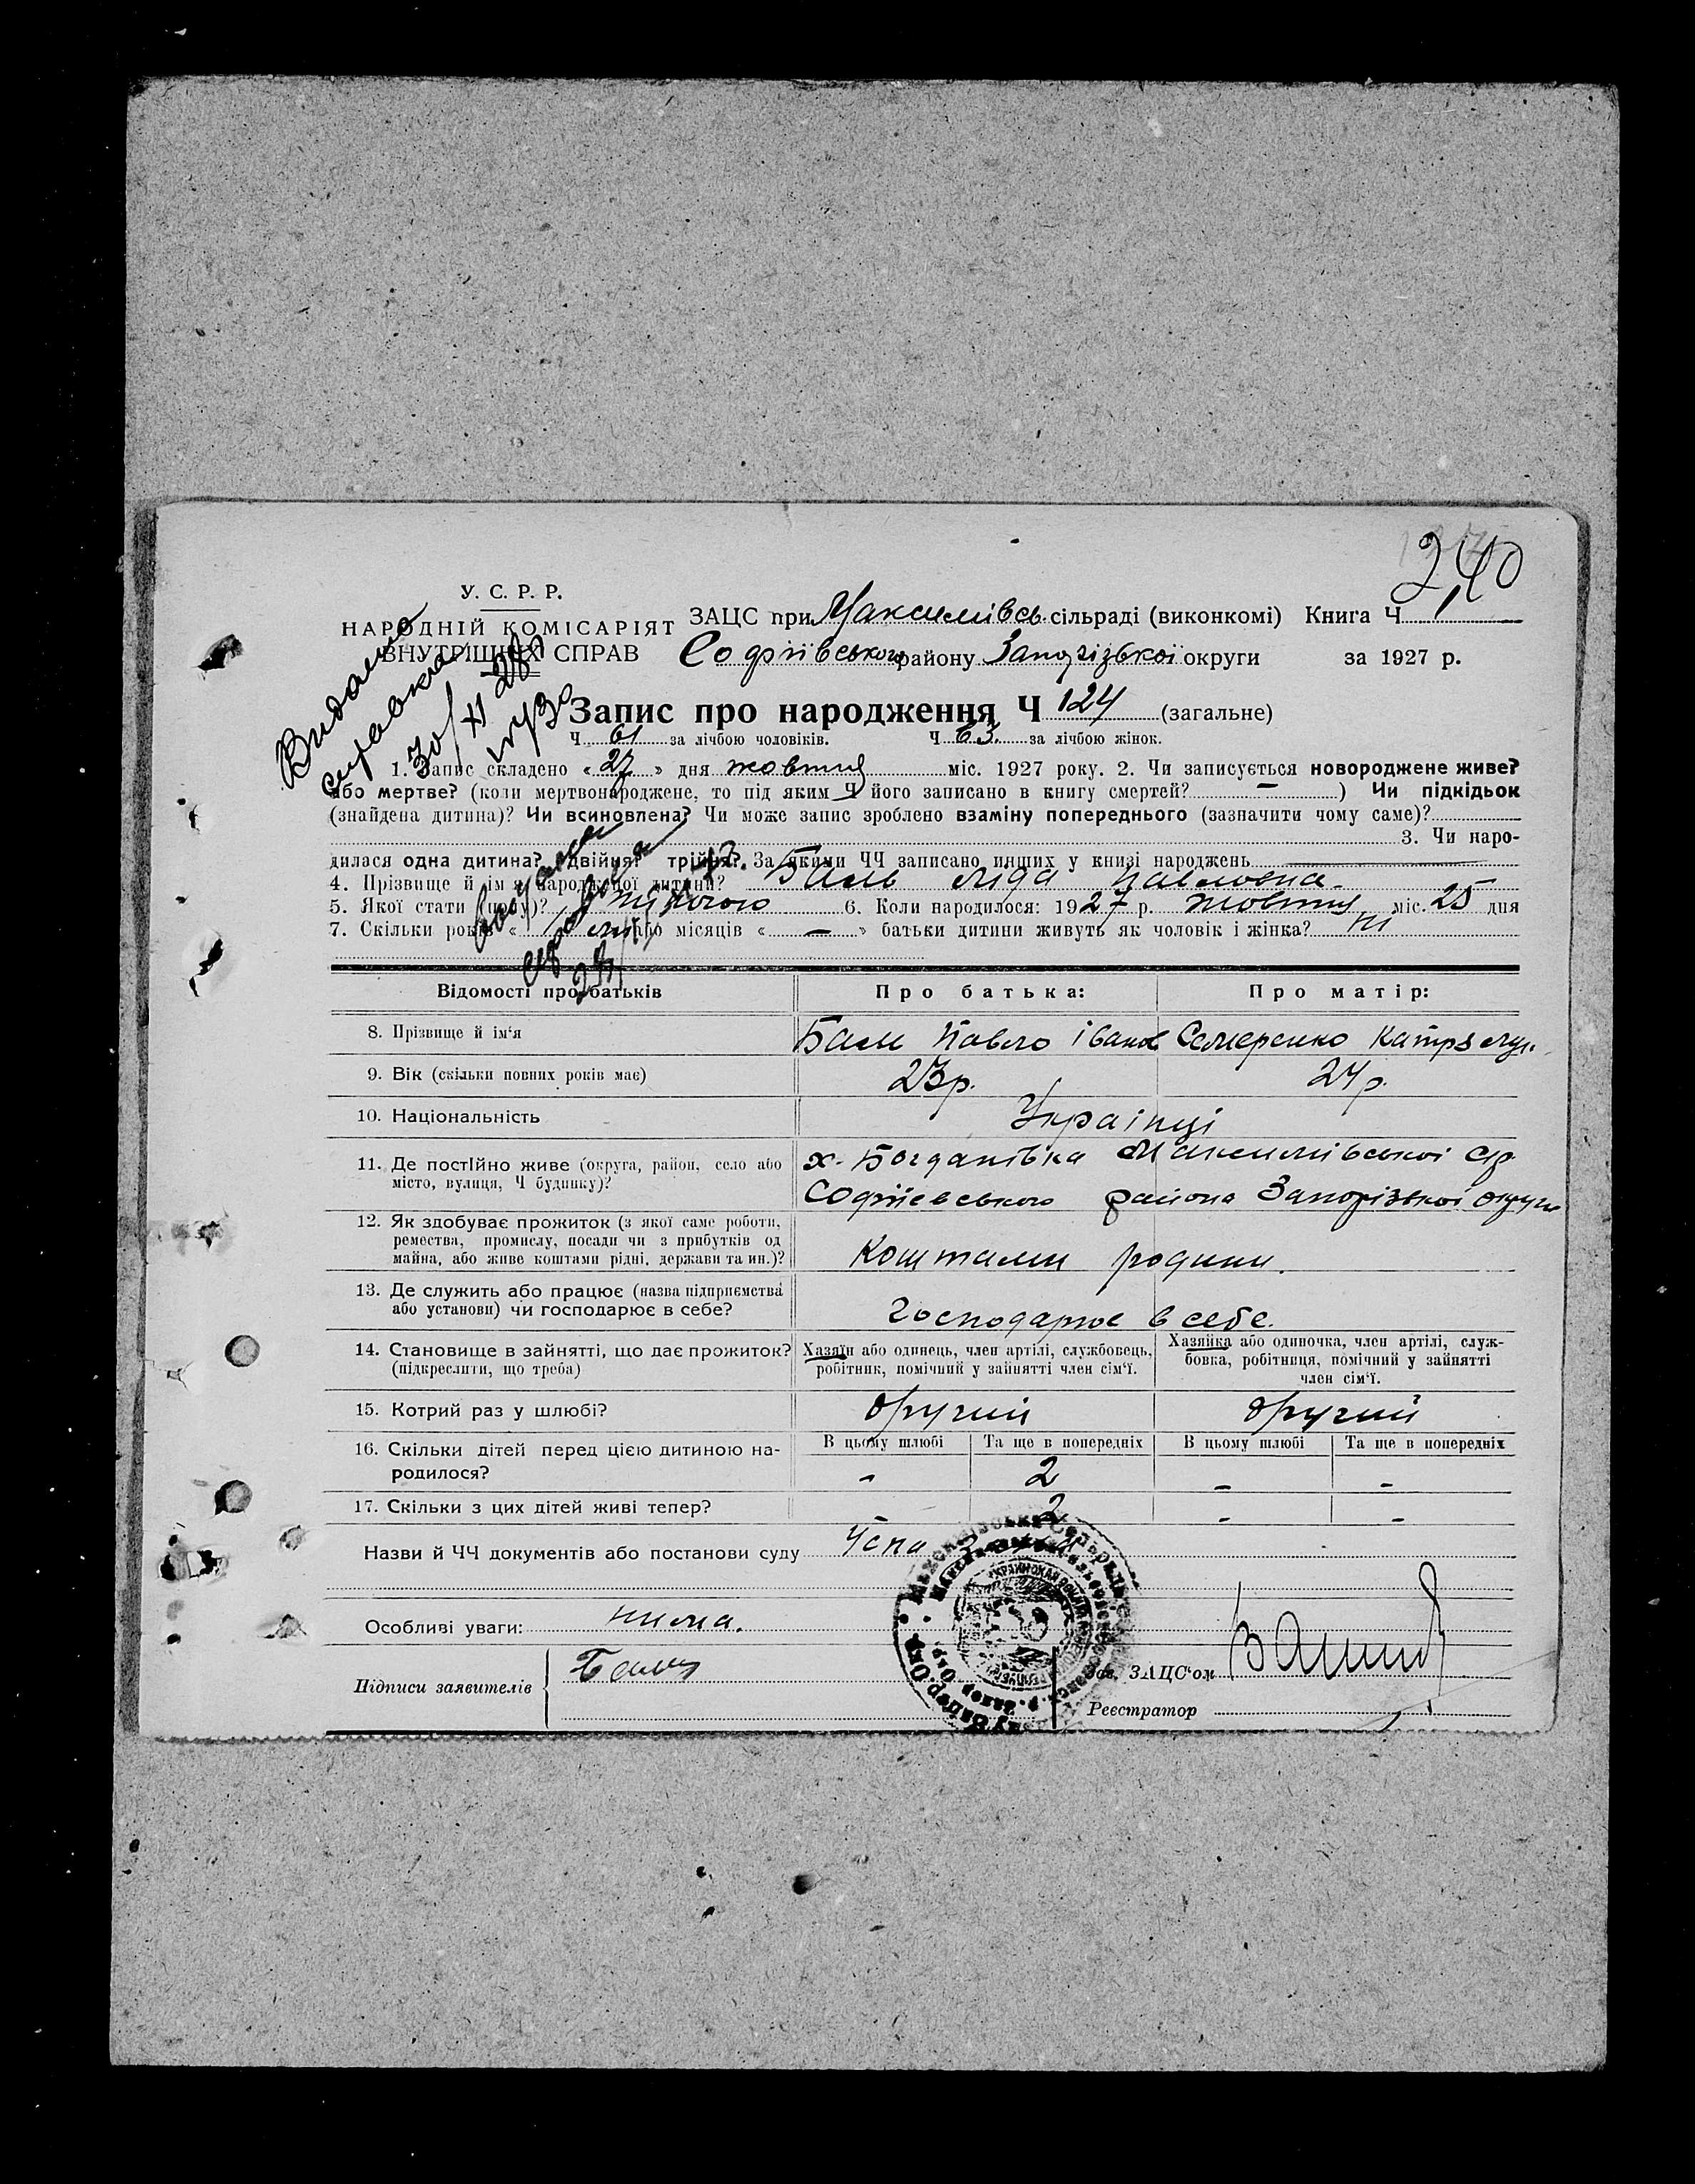 240
У. С. Р. Р.
НАРОДНІЙ КОМІСАРІЯТ
ВНУТРІШНІХ СПРАВ
ЗАЦС при Максимівсь. сільраді (виконкомі) Книга Ч
Софіївського району Запорізької округи за 1927 р.
Видано
справка
30/XI 28
Запис про народження Ч 124 (загальне)
Ч 61 за лічбою чоловіків. Ч 63. за лічбою жінок.
1. Запис складено « 27 » дня жовтня міс. 1927 року. 2. Чи записується новороджене живе?
або мертве? (коли мертвонароджене, то під яким Ч його записано в книгу смертей? – ) Чи підкідьок
(знайдена дитина)? Чи всиновлена? Чи може запис зроблено взаміну попереднього (зазначити чому саме)?
3. Чи наро-
дилася одна дитина? двійня? трійня? За якими ЧЧ записано инших у книзі народжень
4. Прізвище й ім'я народженої дитини? Баль Ліда Павловна.
5. Якої стати (полу)? жіночого 6. Коли народилося: 1927 р. жовтня міс. 25 дня
7. Скільки років « 1 або місяців « – » батьки дитини живуть як чоловік і жінка? ні
Відомості про батьків
Про батька:
Про матір:
8. Прізвище й ім'я
Баль Павло Іванов
Семеренко Катря
9. Вік (скільки повних років має)
23 р.
24 р.
10. Національність
Українці
11. Де постІйно живе (округа, район, село або
місто, вулиця, Ч будинку)?
х. Богданівка Максимівської с/р
Софіевського района Запорізької округи
12. Як здобуває прожиток (з якої саме роботи,
ремества, промислу, посади чи з прибутків од
майна, або живе коштами рідні, держави та ин.)?
Коштами родини.
13. Де служить або працює (назва підприємства
або установи) чи господарює в себе?
Господарює в себе.
14. Становище в зайнятті, що дає прожиток?
(підкреслити, що треба)
Хазяїн або одинець, член артілі, службовець,
робітник, помічний у зайнятті член сім'ї.
Хазяйка або одиночка, член артілі, служ-
бовка, робітниця, помічний у зайнятті
член сім'ї.
15. Котрий раз у шлюбі?
другий
другий
16. Скільки дітей перед цією дитиною на-
родилося?
В цьому шлюбі
Та ще в попередніх
В цьому шлюбі
Та ще в попередніх
- 2 - -
17. Скільки з цих дітей живі тепер?
2 - -
Назви й ЧЧ документів або постанови суду
Особливі уваги: нима.
Підписи заявителів
Баль
Зав. ЗАЦС'ом
Реєстратор